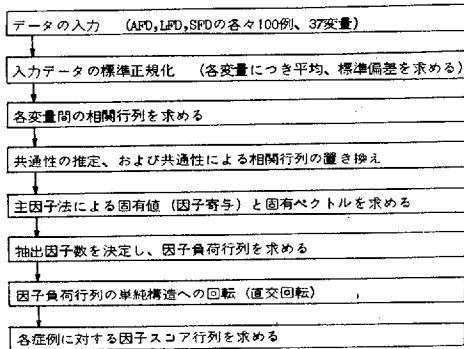 データの入力 (AFD,LFD,SFDの各々100例、37変量)
入力データの標準正規化 (各変量につき平均、標準偏差を求める)
各変量間の相関行列を求める
共通性の推定、および共通性による相関行列の置き換え
主因子法による固有値(因子寄与)と固有ベクトルを求める
抽出因子数を決定し、因子負荷行列を求める
因子負荷行列の単純構造への回転(直交回転)
各症例に対する因子スコア行列を求める